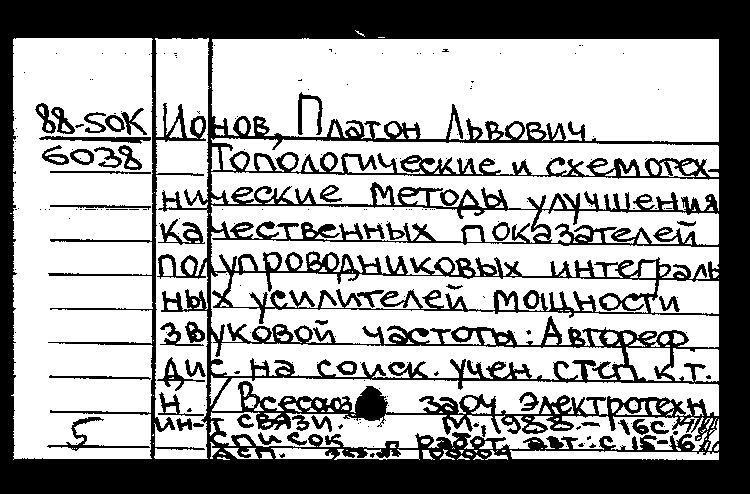 88-50К Ионов, Платон Львович.
6038 Топологические и схемотех-
нические методы улучшения
качественных показателей
полупроводниковых интеграль
ных усилителей мощности
звуковой частоты: Автореф.
дис. на соиск. учен. степ. к.т.
н. / Всесоюз заоч. электротехн.
5 ин-т связи. М., 1988. – 16с.
Список работ. авт.: с. 15-16